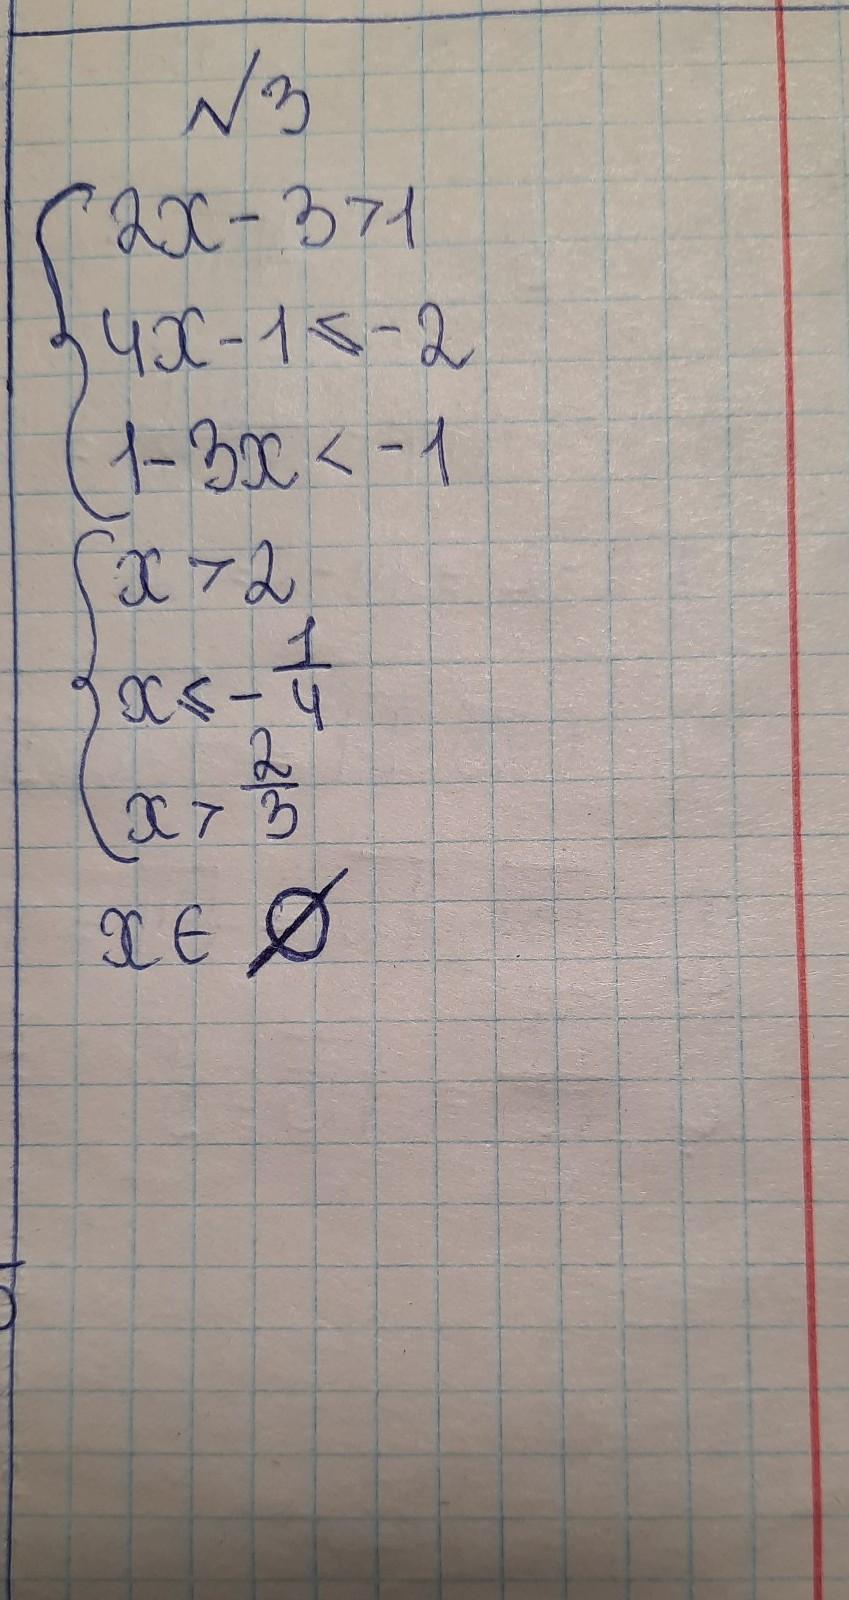 √3
2x - 3 > 1
4x - 1 ⩽ - 2
1 - 3x < - 1
x > 2
x ⩽ - 1/4
x > 2/3
x ∈ ∅